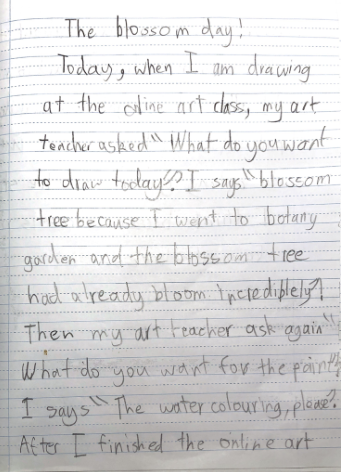 The blossom day!
Today, when I am drawing
at the online art class, my art
teacher asked "What do you want
to draw today?" I says "blossom
tree because I went to botany
garden and the blossom tree
had already bloom Incrediblely"!
Then my art teacher ask again"
What do you want for the paint"?
I says "The water colouring, please".
After I finished the online art